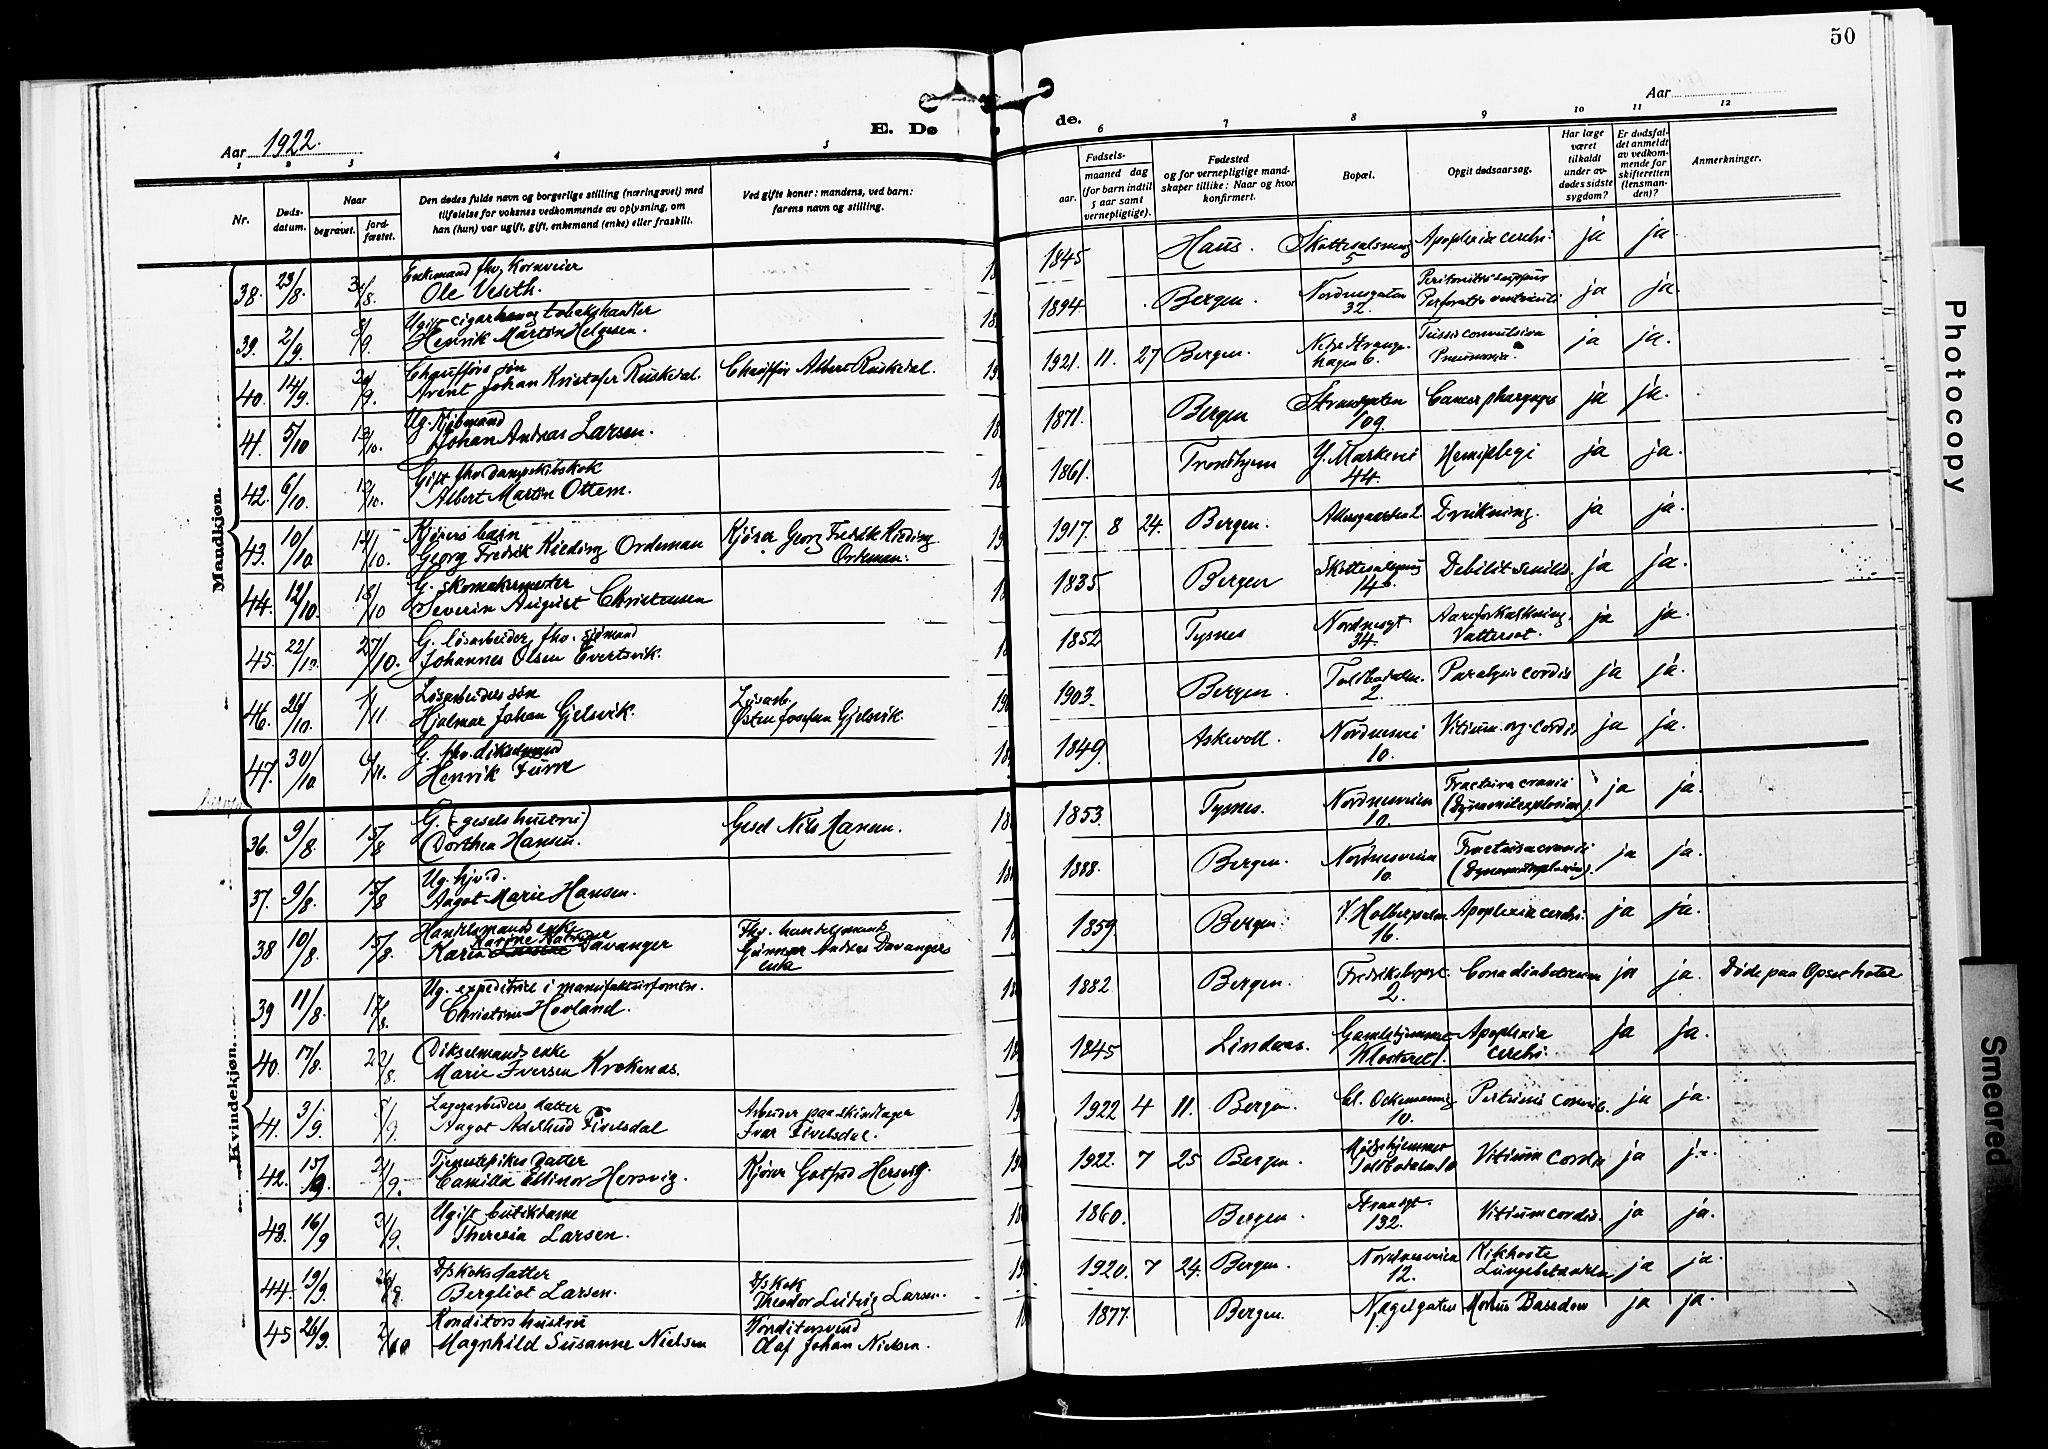 50
Aar 1922.
E. Dø
de.
Aar
1 2 3 4 5 6 7 8 9 10 11 12
Nr.
Døds-
datum.
Naar
begravet.
jord-
fæstet.
Den dødes fulde navn og borgerlige stilling (næringsvei) med
tilføielse for voksnes vedkommende av oplysning, om
han (hun) var ugift, gift, enkemand (enke) eller fraskilt.
Ved gifte koner: mandens, ved barn:
farens navn og stilling.
Fødsels-
aar.
maaned dag
(for barn indtil
5 aar samt
vernepligtige).
Fødested
og for vernepligtige mand-
skaper tillike: Naar og hvor
konfirmert.
Bopæl.
Opgit dødsaarsag.
Har læge
været
tilkaldt
under av-
dødes sidste
sygdom?
Er dødsfal-
det anmeldt
av vedkom-
mende for
skifteretten
(lensman-
den)?
Anmerkninger.
Mandkjøn.
38. 23/8. Enkemand fhv. Kornveier
Ole Veseth.
1845 Haus. 5 Apoplexia cerebri. ja ja.
39. 2/9. 8/9. Ugift cigar og tobakshandler
Henrik Martin Helgesen.
1894. Bergen. Nordnesgaten 32. ja ja.
40. 14/9. 20/9. Chaufførs søn
Arent Johan Kristofer Ruskedal. Chauffør Albert Ruskedal.
1921. 11. 27 Bergen. Nedre Strange-
hagen 6. Tussis convulsiva
Pneumonia. ja ja.
41. 5/10 12/10. Ug. Kjøbmand
Johan Andreas Larsen.
1871. Bergen Strandgaten
109. Cancer pharyngis ja ja.
42. 6/10. 12/10. Gift fhv. Dampskibskok
Albert Martin Ottem.
1861. Trondhjem Y. Markevei
44. Hemiplegi ja ja.
43. 10/10 14/10. Kjørers barn
Georg Fredrik Kieding Ordeman Kjører Georg Fredrik Kieding
Ordeman.
1917. 8 24. Bergen. Drukning. ja ja.
44. 12/10. 18/10 G. skomakermester
Severin August Christensen
1835 Bergen 14b. Debilit. senilis. ja ja.
45. 22/10. 27/10. G. løsarbeider, fhv. sjømand
Johannes Olsen Evertsvik.
1852 Tysnes Nordnesgt.
34. Aareforkalkning.
Vattersot. ja ja.
46. 26/10. 1/11 Løsarbeiders søn
Hjalmar Johan Gjelsvik. Løsarb.
Østen Josefsen Gjelsvik.
1903. Bergen. Toldbodalm.
2. Paralysis cordis ja ja.
47. 30/10 G. fhv. dikselmand
Henrik Furre
1849. Askevoll. Nordnesvei
10. Vitium org. cordis ja ja.
Kvindekjøn.
36. 9/8. 15/8 G. (gesels hustru)
Dorthea Hansen. Gesel Nils Hansen.
1853. Tysnes. Nordnesveien
10. Fractura cranii
(Dynamiteksplosion). ja ja.
37. 9/8. 15/8 Ug. hjv. d.
Aagot Marie Hansen.
1888. Bergen. Nordnesveien
10. Fractura cranii
(Dynamiteksplosion). ja ja.
38 10/8. 15/8. Handelsmands enke
Karine Katrine
Davanger Fhv. handelsmands
Gunnar Andreas Davangers
enke
1859 Bergen. V. Holbergsalm.
16. Apoplexia cerebri. ja ja.
39 11/8. 17/8. Ug. expeditrice i manufakturforretn.
Christine Hovland.
1882 Bergen.
2. Coma diabeticum ja ja. Døde paa Opset hotel
40. 17/8. 22/8. Dikselmands enke
Marie Iversen Krokenas.
1845 Lindaas. Gamlehjemmet
Klosteret 1. Apoplexia
cerebri. ja ja.
41. 3/9. Lagerarbeiders datter
Aagot Adelheid Fivelsdal Arbeider paa skindlager
Ivar Fivelsdal.
1922 4 11. Bergen.
10. ja ja.
42. 15/9. Tjenestepikes datter
Camilla Ellinor Hersvig. Kjører Gotfred Hersvig.
1922. 7 25 Bergen. Mødrehjemmet
Vitium cordis ja ja.
43. 16/9 Ugift butikdame
Theresia Larsen.
1860. Bergen. Strandgt.
132. Vitium cordis. ja ja.
44. 19/9. D/s koks datter
Bergliot Larsen. D/s kok
Theodor Ludvig Larsen.
1920. 7 24. Bergen. Nordnesveien
12. Kikhoste
Lungebetændelse ja ja.
45 26/9. 2/10 Konditors hustru
Magnhild Susanne Nielsen Konditorsvend
Olaf Johan Nielsen.
1877. Bergen. Nygelgaten Morbus Basedow ja ja.
Photocopy
Smeared